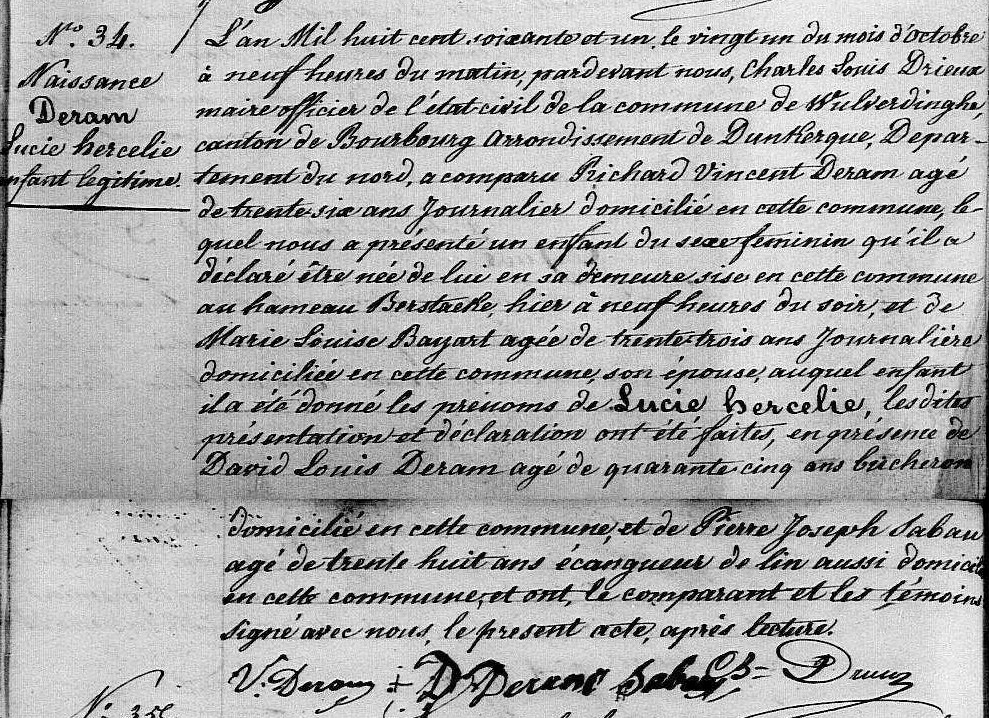 N.º 34.
Naissance
Deram
Lucie hercelie
enfant legitime.
L'an Mil huit cent soixante et un, le vingt un du mois d'Octobre
à neuf heures du matin, pardevant nous, Charles Louis Drieux
maire officier de l'état civil de la commune de Wulverdinghe
canton de Bourbourg arrondissement de Dunkerque, Depar-
tement du nord, a comparu Richard Vincent Deram agé
de trente six ans Journalier domicilié en cette commune, le-
quel nous a présenté un enfant du sexe feminin qu'il a
déclaré être née de lui en sa demeure sise en cette commune
au hameau Berstacke, hier à neuf heures du soir, et de
Marie Louise Bayart agée de trente trois ans Journalière
domiciliée en cette commune, son épouse, auquel enfant
il a été donné les prénoms de Lucie hercelie, les dites
présentation et déclaration ont été faites, en présence de
David Louis Deram agé de quarante cinq ans bucheron
domicilié en cette commune, et de Pierre Joseph Sabau
agé de trente huit ans écangueur de lin aussi domicilié
en cette commune, et ont, le comparant et les témoins
signé avec nous, le present acte, après lecture.
V. Deram D Deram Sabau Drieux
N.º 35